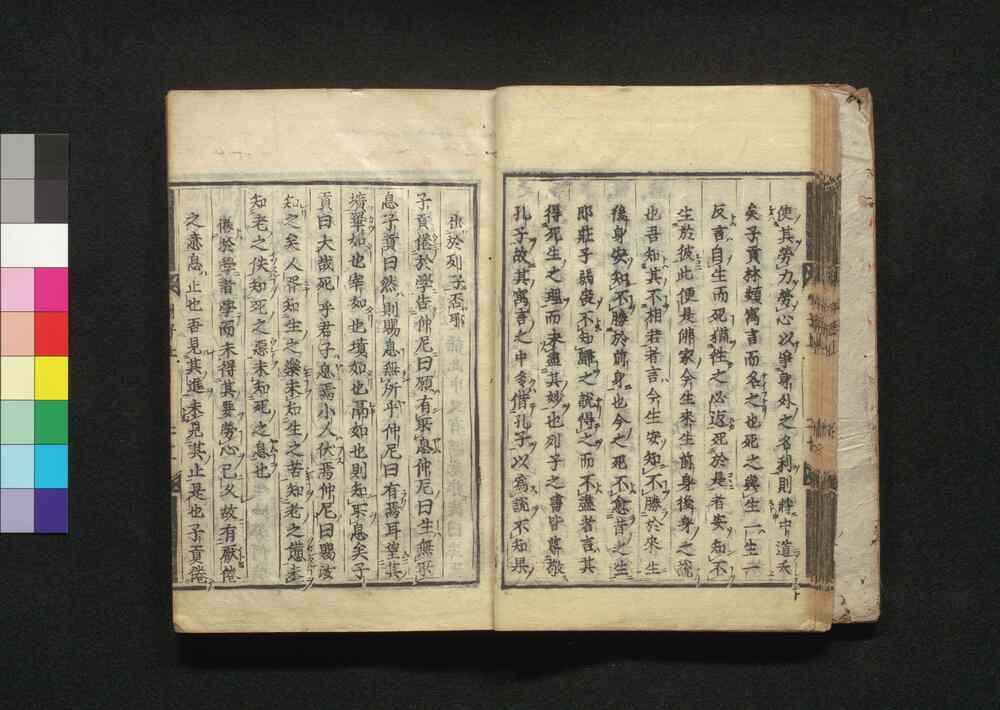 使其勞力勞心以爭身外之名利則悖中道矣
矣子貢林類寓言而名之也死之與生一生一
反言自生而死猶徃之必返死於是者安知不
生於彼此便是佛家今生來生前身後身之說
也吾知其不相若者言今生安知不勝於來生
後身安知不勝於前身也今之死不愈昔之生
耶莊子弱喪不知歸之說得之而不盡者言其
得死生之理而未盡其妙也列子之書皆尊敬
孔子故其寓言之中多借孔子以爲說不知果
也於列子否耶
子貢倦於學告仲尼曰願有所息仲尼曰生無所
息子貢曰然則賜息無所乎仲尼曰有焉耳望其
壙睪如也宰如也墳如也鬲如也則知所息矣子
貢曰大哉死乎君子息焉小人伏焉仲尼曰賜汝
知之矣人胥知生之樂未知生之苦知老之憊未
知老之佚知死之惡未知死之息也
倦於學者學而未得其要勞心已久故有厭倦
之意息止也吾見其進未見其止是也子貢倦